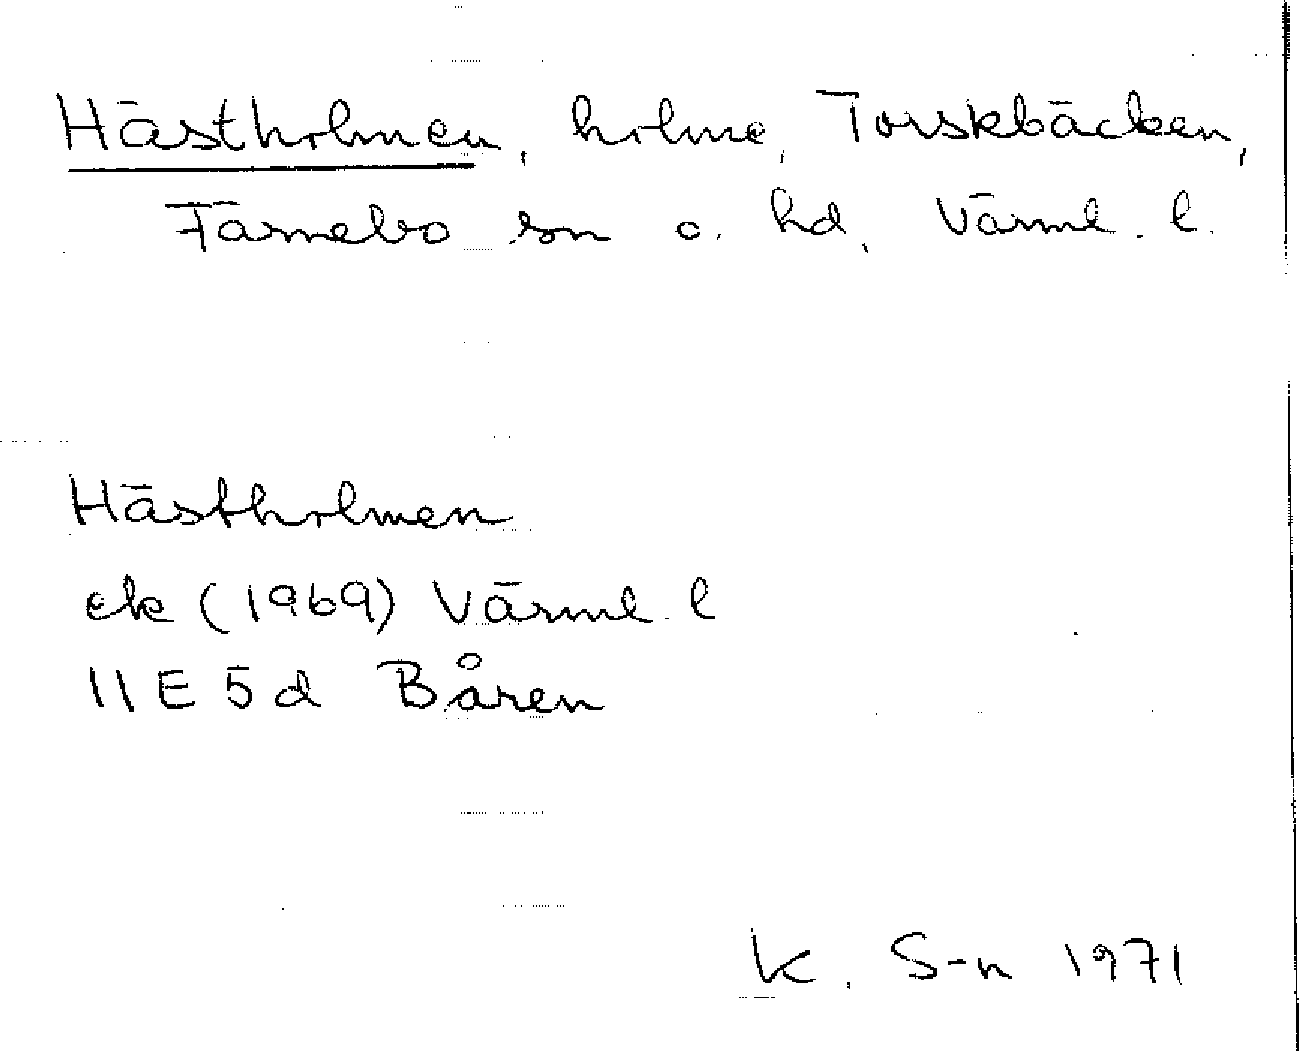 Hästholmen, holme, Torskbäcken,
Färnebo sn o. hd, Värml. l.
Hästholmen
ek (1969) Värml. l
11E 5d Båren
K. S-n 1971